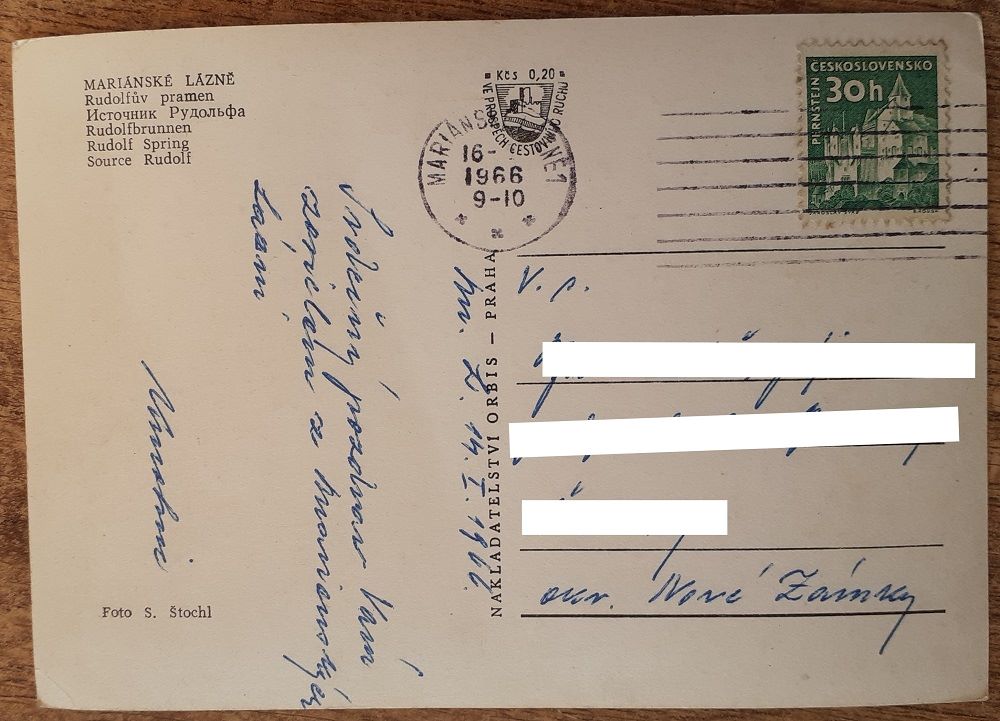 MARIÁNSKÉ LÁZNĚ
Rudolfův pramen
Источник Рудольфа
Rudolfbrunnen
Rudolf Spring
Source Rudolf
Kčs 0,20
VE PROSPĚCH CESTOVNÍHO RUCHU
MARIÁNS NĚ 1
16-
1966
9-10
ČESKOSLOVENSKO
30h
PERNŠTEJN
M. L. 14. I. 1966.
Srdečný pozdrav Vám
zasielam z Marianských
Lázní
NAKLADATELSTVÍ ORBIS — PRAHA
V. p.
okr. Nové Zámky
Foto S. Štochl